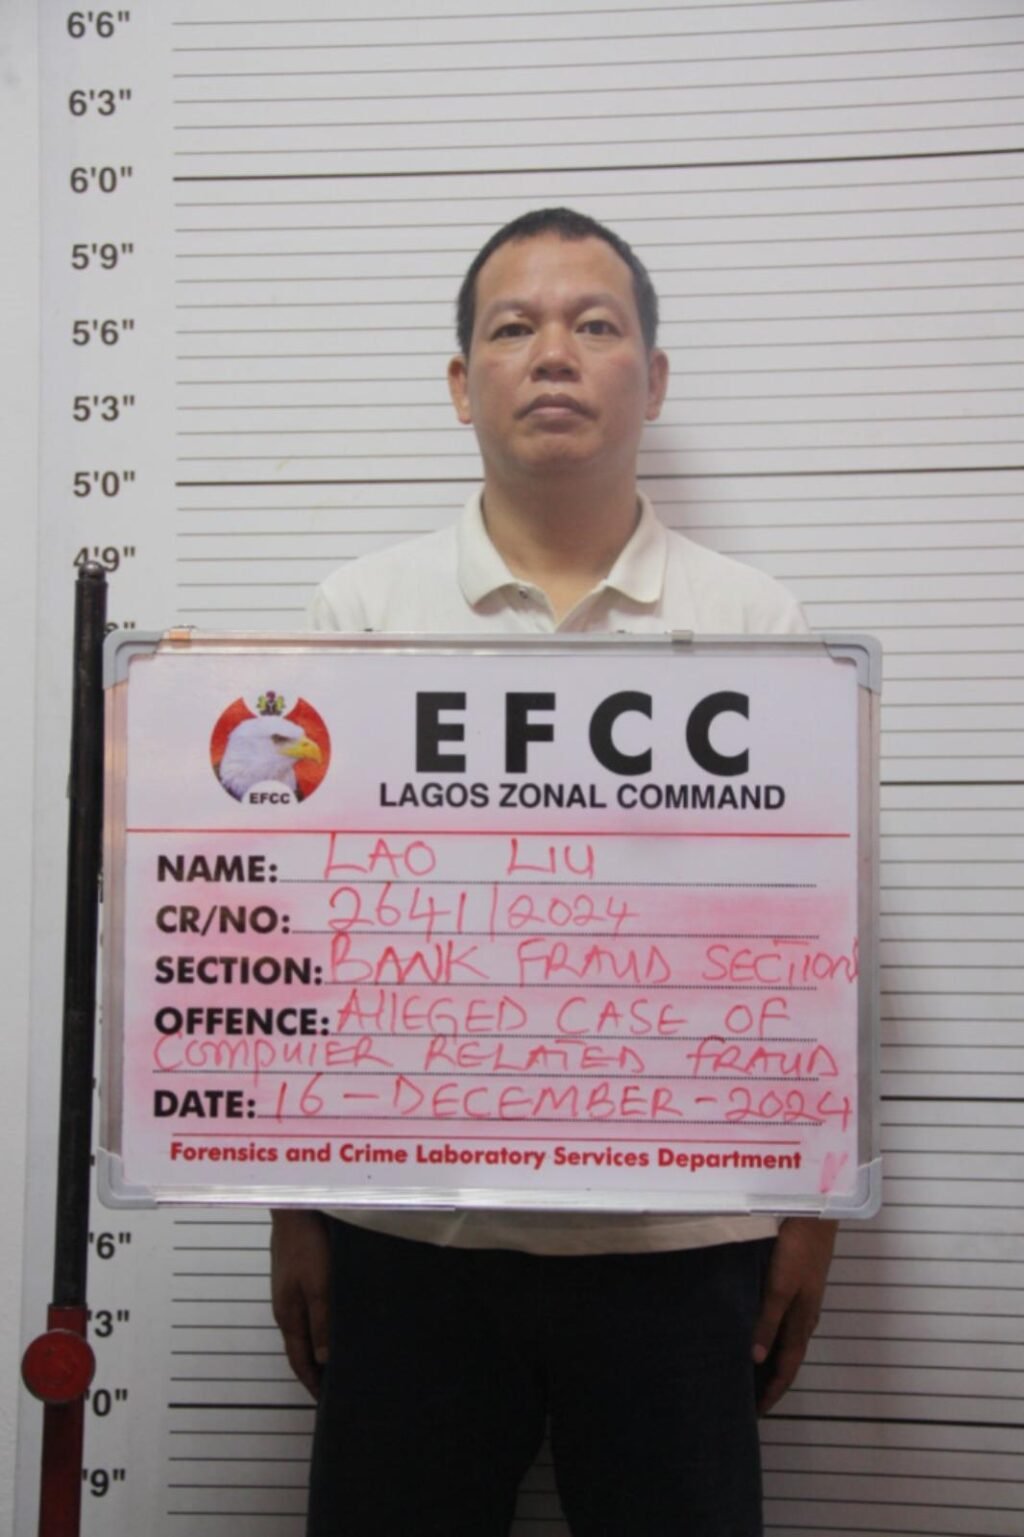 6'6"
6'3"
6'0"
5'9"
5'6"
5'3"
5'0"
4'9"
EFCC
EFCC
LAGOS ZONAL COMMAND
NAME: LAO LIU
CR/NO: 2641/2024
SECTION: BANK FRAUD SECTION
OFFENCE: AllEGED CASE OF
COMPUTER RELATED fRAUD
DATE: 16-DECEMBER-2024
Forensics and Crime Laboratory Services Department
'6"
'3"
'0"
'9"